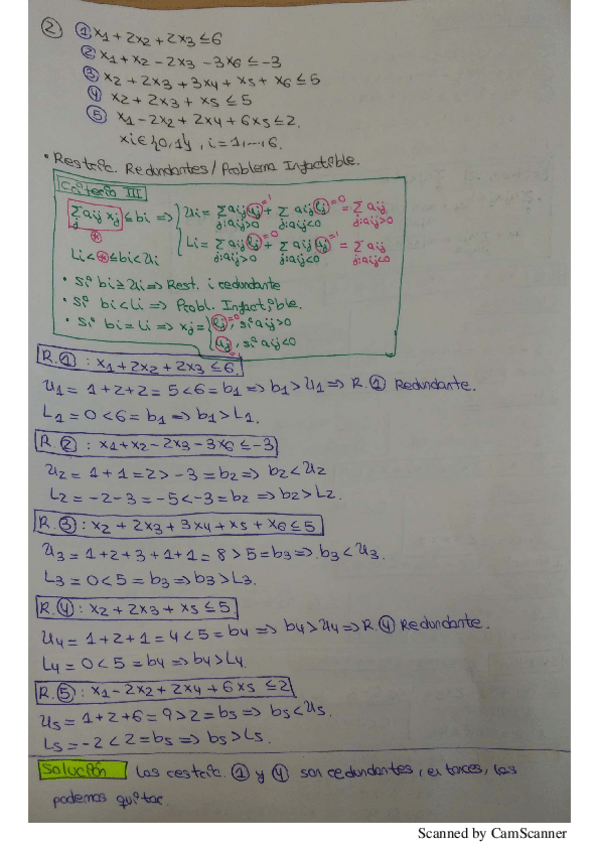 ② ① x1 + 2x2 + 2x3 ≤ 6
② x1 + x2 - 2x3 - 3x6 ≤ -3
③ x2 + 2x3 + 3x4 + x5 + x6 ≤ 5
④ x2 + 2x3 + x5 ≤ 5
⑤ x1 - 2x2 + 2x4 + 6x5 ≤ 2.
xi ∈ {0,1}, i = 1,...,6.
• Restric. Redundantes / Problema Infactible.
Criterio III
Σj aij xj ≤ bi => { Ui = Σj:aij>0 aij uj=1 + Σj:aij<0 aij lj=0 = Σj:aij>0 aij
Li = Σj:aij>0 aij lj=0 + Σj:aij<0 aij uj=1 = Σj:aij<0 aij
Li < ⊛ ≤ bi < Ui
• Si bi ≥ Ui => Rest. i redundante
• Si bi < Li => Probl. Infactible.
• Si bi = Li => xj = { lj=0, si aij > 0
uj=1, si aij < 0
R.①: x1 + 2x2 + 2x3 ≤ 6.
U1 = 1+2+2 = 5 < 6 = b1 => b1 > U1 => R.① Redundante.
L1 = 0 < 6 = b1 => b1 > L1.
R.②: x1 + x2 - 2x3 - 3x6 ≤ -3
U2 = 1+1 = 2 > -3 = b2 => b2 < U2
L2 = -2-3 = -5 < -3 = b2 => b2 > L2.
R.③: x2 + 2x3 + 3x4 + x5 + x6 ≤ 5
U3 = 1+2+3+1+1 = 8 > 5 = b3 => b3 < U3.
L3 = 0 < 5 = b3 => b3 > L3.
R.④: x2 + 2x3 + x5 ≤ 5
U4 = 1+2+1 = 4 < 5 = b4 => b4 > U4 => R.④ Redundante.
L4 = 0 < 5 = b4 => b4 > L4.
R.⑤: x1 - 2x2 + 2x4 + 6x5 ≤ 2
U5 = 1+2+6 = 9 > 2 = b5 => b5 < U5.
L5 = -2 < 2 = b5 => b5 > L5.
Solución Las restric. ① y ④ son redundantes, entonces, las
podemos quitar.
Scanned by CamScanner